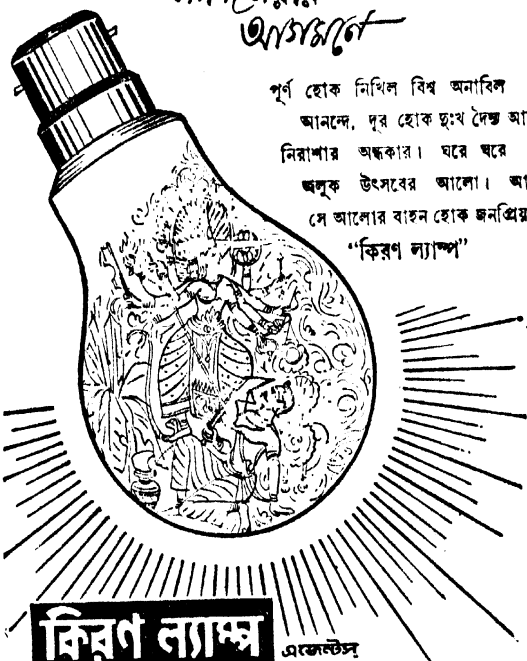 আগমনে
পূর্ণ হোক নিখিল বিশ্ব অনাবিল
আনন্দে, দূর হোক দুঃখ দৈন্য আ
নিরাশার অন্ধকার। ঘরে ঘরে
জ্বলুক উৎসবের আলো। আ
সে আলোর বাহন হোক জনপ্রিয়
“কিরণ ল্যাম্প”
কিরণ ল্যাম্প
এজেন্টস্